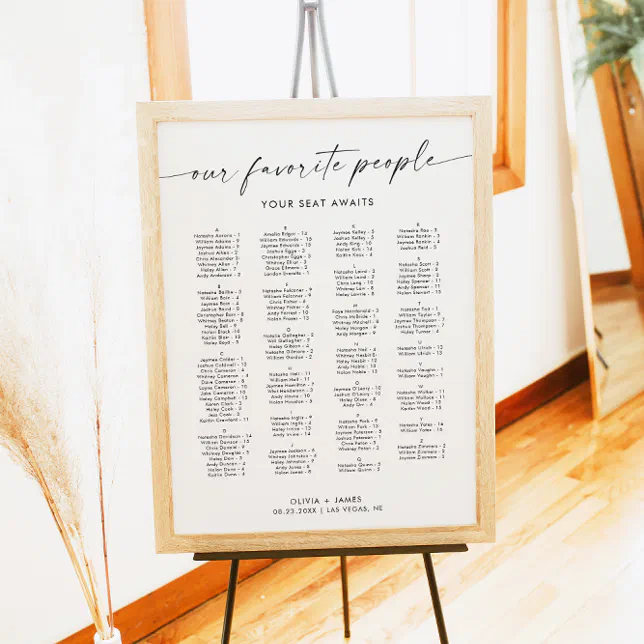 our favorite people
YOUR SEAT AWAITS
A
Natasha Aarons - 1
William Adams - 9
Jaymes Adams - 9
Joshua Allen - 2
Chris Alexander
Whitney Allen - 1
Haley Allen - 7
Andy Anderson - 3
B
Natasha Bailhe - 3
William Barr - 4
Jaymes Barr - 4
Joshua Beard - 5
Christopher Barr - 8
Whitney Benton - 8
Haley Bell - 9
Nolan Black - 10
Kaitlin Blair - 10
Haley Boyd - 9
C
Jaymes Calder - 1
Joshua Caldwell - 13
Chris Cameron - 6
Whitney Cameron - 6
Dave Cameron - 8
Layne Cameron - 10
Jake Cameron - 10
Haley Campbell - 13
Karen Clark - 2
Haley Cook - 3
Jess Cook - 3
Kaitlin Crawford - 11
D
Natasha Davidson - 14
William Denson - 15
Chris Dawson - 9
Whitney Douglas - 5
Haley Dow - 3
Andy Duncan - 4
Nolan Dunn - 4
Kaitlin Dunn - 4
E
Amelia Edgar - 14
William Edwards - 15
Jaymes Edwards - 15
Joshua Eggs - 3
Christopher Eggs - 3
Whitney Elliott - 3
Grace Ellmore - 3
Landon Everette - 1
F
Natasha Falconer - 9
William Falconer - 9
Chris Fisher - 6
Whitney Fisher - 6
Andy Forrest - 10
Nolan Frazer - 13
G
Natasha Gallagher - 5
Will Gallagher - 5
Haley Gibson - 4
Natasha Gilmore - 2
William Gordon
H
Natasha Hall - 11
William Hall - 11
Jaymes Hamilton - 7
Whit Henderson - 3
Andy Horne - 10
Nolan Houston - 3
I
Natasha Inglis - 9
William Inglis - 4
Haley Irvine - 14
Andy Irvine - 14
J
Jaymes Jackson - 2
Whitney Johnston - 4
Haley Johnston - 4
Andy Jones - 8
Nolan Jones - 8
K
Jaymes Kelley - 5
Joshua Kelley - 9
Andy King - 10
Nolan Kirk - 14
Kaitlin Knox - 14
L
Natasha Laird - 2
William Laird - 2
Chris Lang - 15
Whitney Law - 8
Haley Lawrie - 6
M
Faye Macdonald - 2
Chris McBride - 1
Whitney Mitchell - 8
Haley Morgan - 9
Andy Morgan - 9
N
Natasha Neil - 4
William Nesbit - 2
Haley Nesbit - 12
Andy Noble - 13
Nolan Noble - 13
O
Jaymes O'Leary - 10
Joshua O'Leary - 10
Haley Olsen - 8
Andy Orr - 6
P
Natasha Park - 9
William Park - 9
Jaymes Paterson - 3
Joshua Paterson - 1
Chris Paton - 5
Whitney Paton - 5
Q
Natasha Quinn - 5
William Quinn - 5
R
Natasha Rae - 5
William Rankin - 3
Jaymes Rankin - 3
Joshua Reid - 4
S
Natasha Scott - 2
William Scott - 2
Haley Spencer - 11
Andy Spencer - 11
Nolan Stewart - 13
T
Natasha Tait - 1
William Taylor - 3
Jaymes Thompson - 7
Joshua Thompson - 7
Haley Turner - 4
U
Natasha Ulrich - 13
William Ulrich - 13
V
Natasha Vaughn - 1
William Vaughn - 1
W
Natasha Walker - 11
William Wallace - 11
Nolan Wood - 13
Kaitlin Wood - 13
Y
William Yates - 15
Natasha Yates - 15
Z
Natasha Zimmers - 2
William Zimmers - 5
Jaymes Zimmers - 2
OLIVIA + JAMES
08.23.20XX | LAS VEGAS, NE